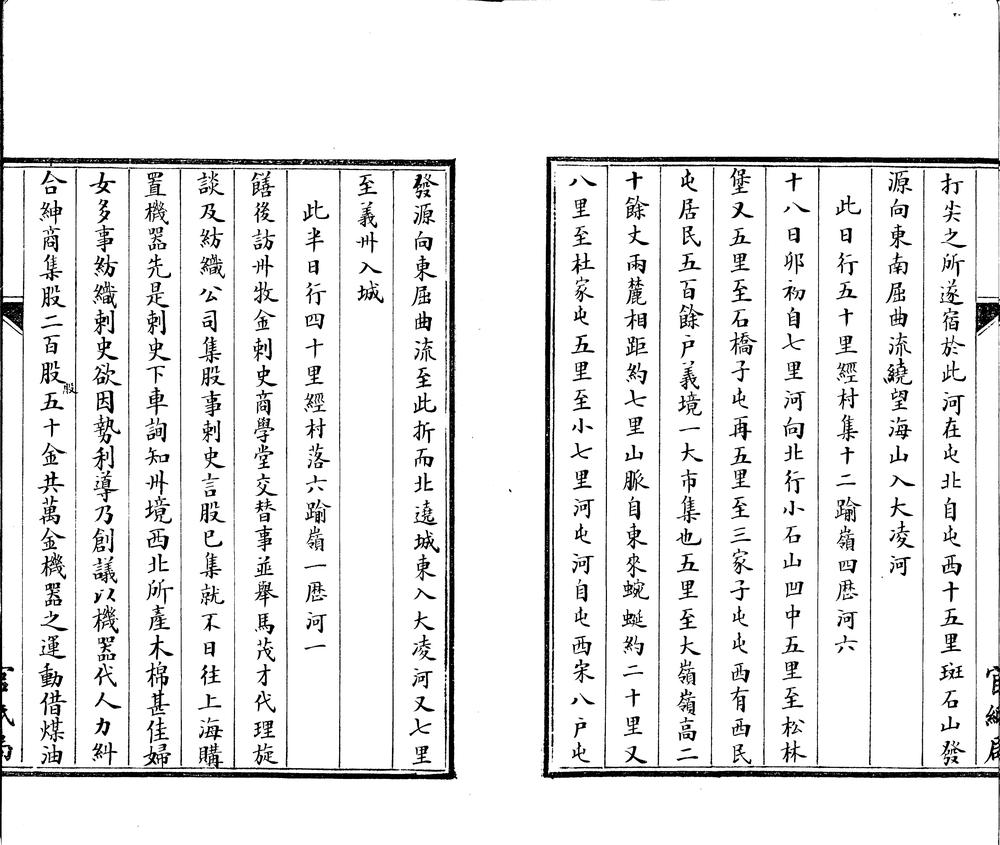 打尖之所遂宿於此河在屯北自屯西十五里斑石山發
源向東南屈曲流繞望海山入大凌河
此日行五十里經村集十二踰嶺四歴河六
十八日卯初自七里河向北行小石山凹中五里至松林
堡又五里至石橋子屯再五里至三家子屯屯西有西民
屯居民五百餘戸義境一大市集也五里至大嶺嶺高二
十餘丈兩麓相距約七里山脈自東來蜿蜒約二十里又
八里至杜家屯五里至小七里河屯河自屯西宋八戸屯
發源向東屈曲流至此折而北遶城東入大凌河又七里
至義州入城
此半日行四十里經村落六踰嶺一歴河一
饍後訪州牧金刺史商學堂交替事並舉馬茂才代理旋
談及紡織公司集股事刺史言股已集就不日往上海購
置機器先是刺史下車詢知州境西北所產木棉甚佳婦
女多事紡織刺史欲因勢利導乃創議以機器代人力糾
合紳商集股二百股股五十金共萬金機器之運動借煤油